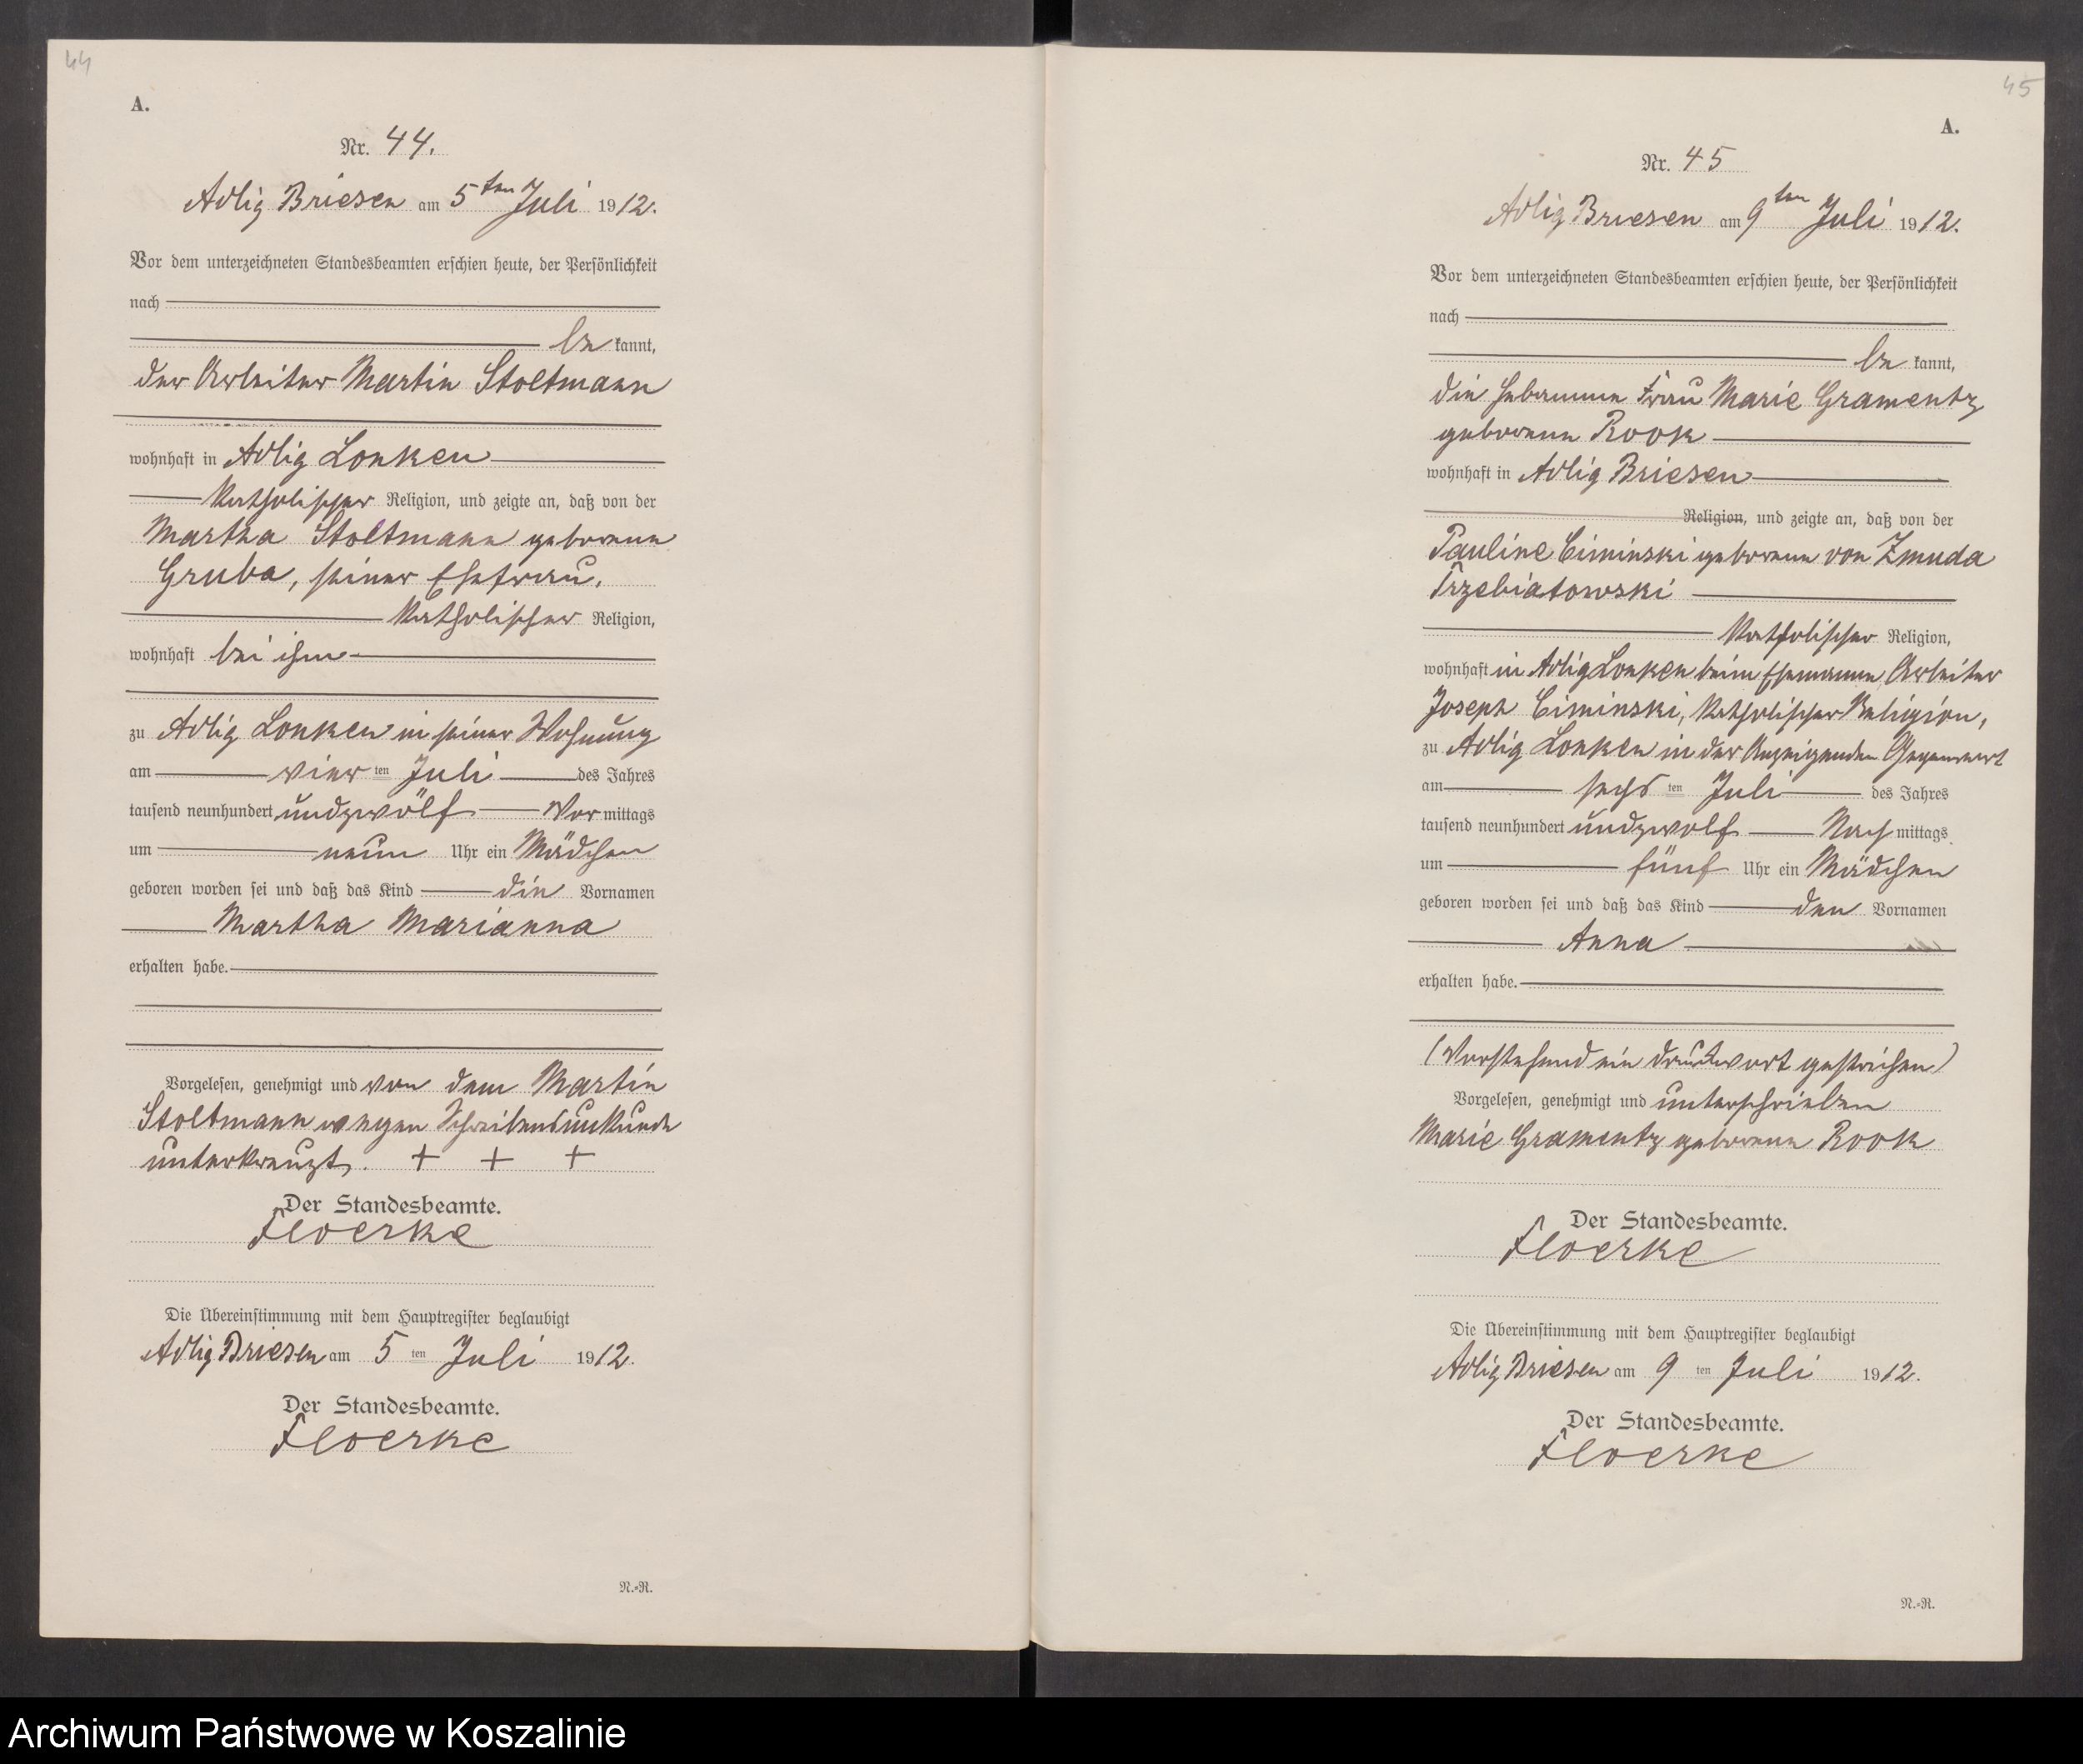 44
A.
Nr. 44.
Adlig Briesen am 5ten Juli 1912.
Vor dem unterzeichneten Standesbeamten erschien heute, der Persönlichkeit
nach
be kannt,
der Arbeiter Martin Stoltmann
wohnhaft in Adlig Lonken
katholischer Religion, und zeigte an, daß von der
Martha Stoltmann geborenen
Gruba, seiner Ehefrau,
katholischer Religion,
wohnhaft bei ihm
zu Adlig Lonken in seiner Wohnung
am vier ten Juli des Jahres
tausend neunhundert undzwölf Vor mittags
um neun Uhr ein Mädchen
geboren worden sei und daß das Kind die Vornamen
Martha Marianna
erhalten habe.
Vorgelesen, genehmigt und von dem Martin
Stoltmann wegen Schreibensunkunde
unterkreuzt. + + +
Der Standesbeamte.
Floerke
Die Übereinstimmung mit dem Hauptregister beglaubigt
Adlig Briesen am 5 ten Juli 1912.
Der Standesbeamte.
Floerke
N.-R.
45
A.
Nr. 45
Adlig Briesen am 9ten Juli 1912.
Vor dem unterzeichneten Standesbeamten erschien heute, der Persönlichkeit
nach
be kannt,
die Hebamme Frau Marie Gramentz
geborene Rook
wohnhaft in Adlig Briesen
Religion, und zeigte an, daß von der
Pauline Ciminski geborene von Zmuda
Trzebiatowski
katholischer Religion,
wohnhaft in Adlig Lonken beim Ehemanne, Arbeiter
Joseph Ciminski, katholischer Religion,
zu Adlig Lonken in der Anzeigenden Gegenwart
am sechs ten Juli des Jahres
tausend neunhundert undzwölf Nach mittags
um fünf Uhr ein Mädchen
geboren worden sei und daß das Kind den Vornamen
Anna
erhalten habe.
(Vorstehend ein Druckwort gestrichen)
Vorgelesen, genehmigt und unterschrieben
Marie Gramentz geborene Rook
Der Standesbeamte.
Floerke
Die Übereinstimmung mit dem Hauptregister beglaubigt
Adlig Briesen am 9 ten Juli 1912.
Der Standesbeamte.
Floerke
N.-R.
Archiwum Państwowe w Koszalinie